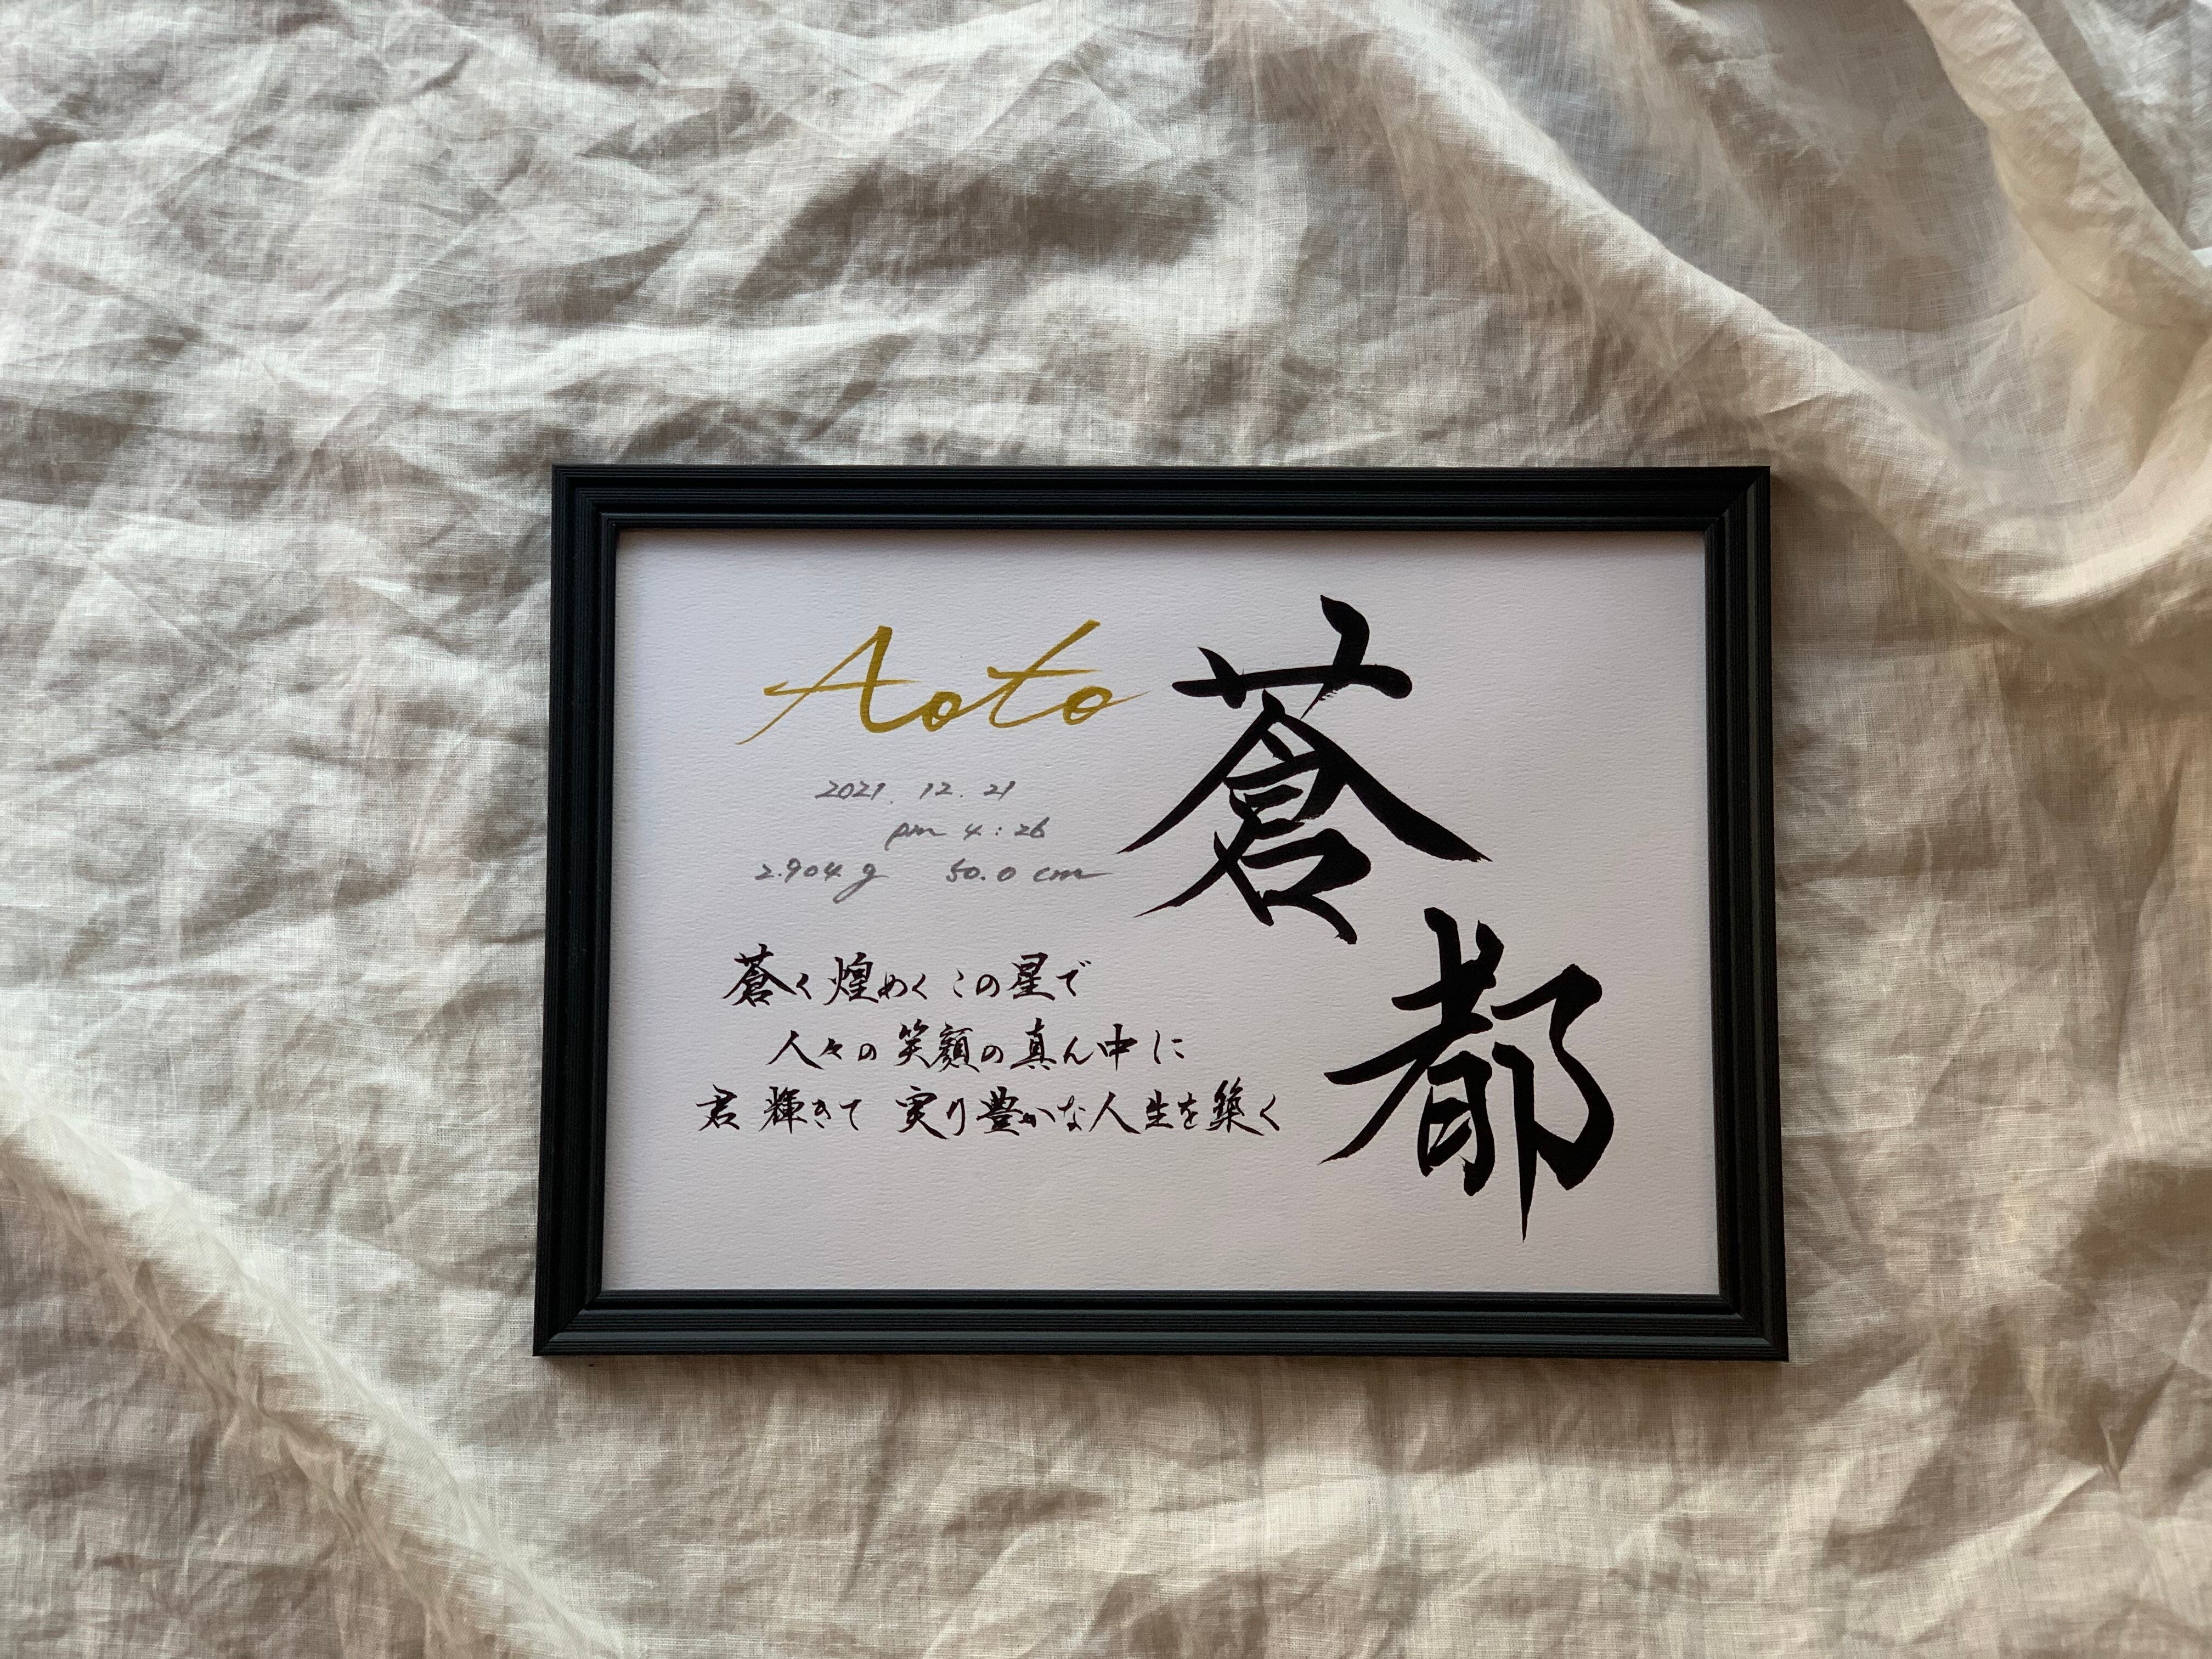 Aoto
蒼都
2021.12.21
pm 4:26
2.904g 50.0cm
蒼く煌めくこの星で
人々の笑顔の真ん中に
君輝きて 実り豊かな人生を築く